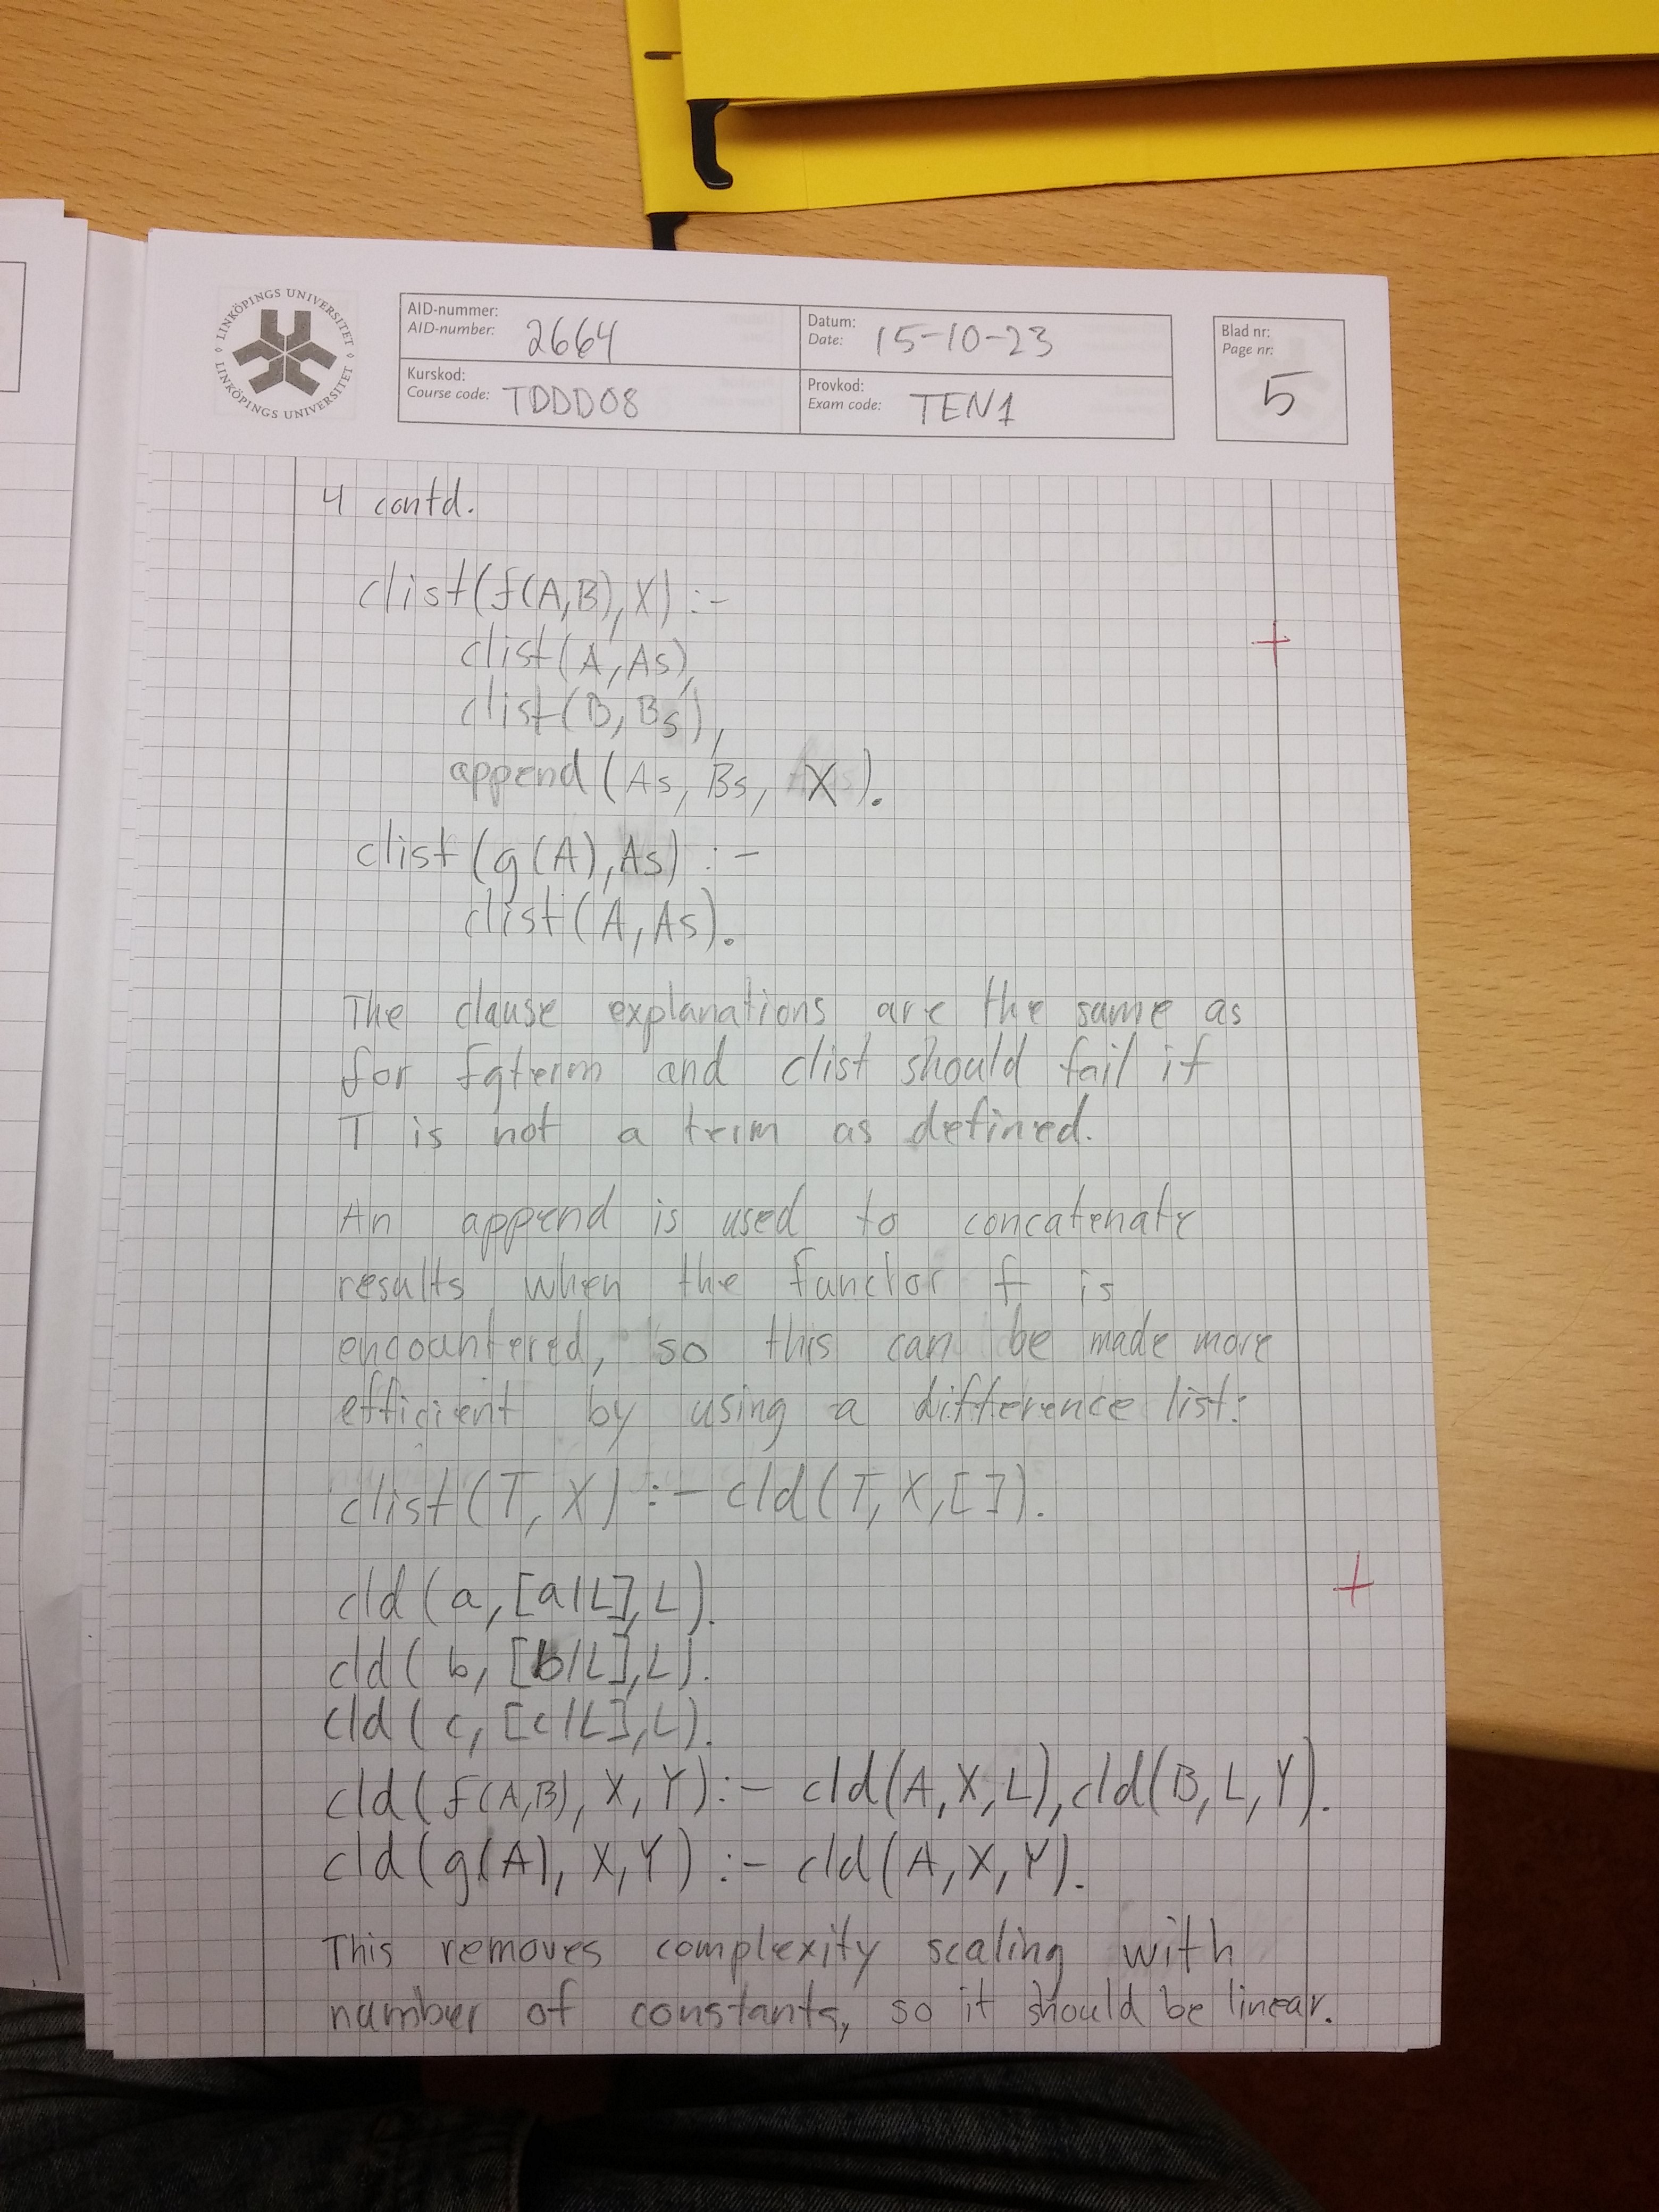 LINKÖPINGS UNIVERSITET
LINKÖPINGS UNIVERSITET
AID-nummer:
AID-number: 2664
Datum:
Date: 15-10-23
Blad nr:
Page nr:
5
Kurskod:
Course code: TDDD08
Provkod:
Exam code: TEN1
4 contd.
clist(f(A,B),X) :-
clist(A,As),
clist(B,Bs),
append(As, Bs, X).
clist(g(A),As) :-
clist(A,As).
The clause explanations are the same as
for fgterm and clist should fail if
T is not a term as defined.
An append is used to concatenate
results when the functor f is
encountered, so this can be made more
efficient by using a difference list:
clist(T, X) :- cld(T,X,[]).
cld(a,[a|L],L).
cld(b,[b|L],L).
cld(c,[c|L],L).
cld(f(A,B), X, Y) :- cld(A,X,L),cld(B,L,Y).
cld(g(A), X,Y) :- cld(A,X,Y).
This removes complexity scaling with
number of constants, so it should be linear.